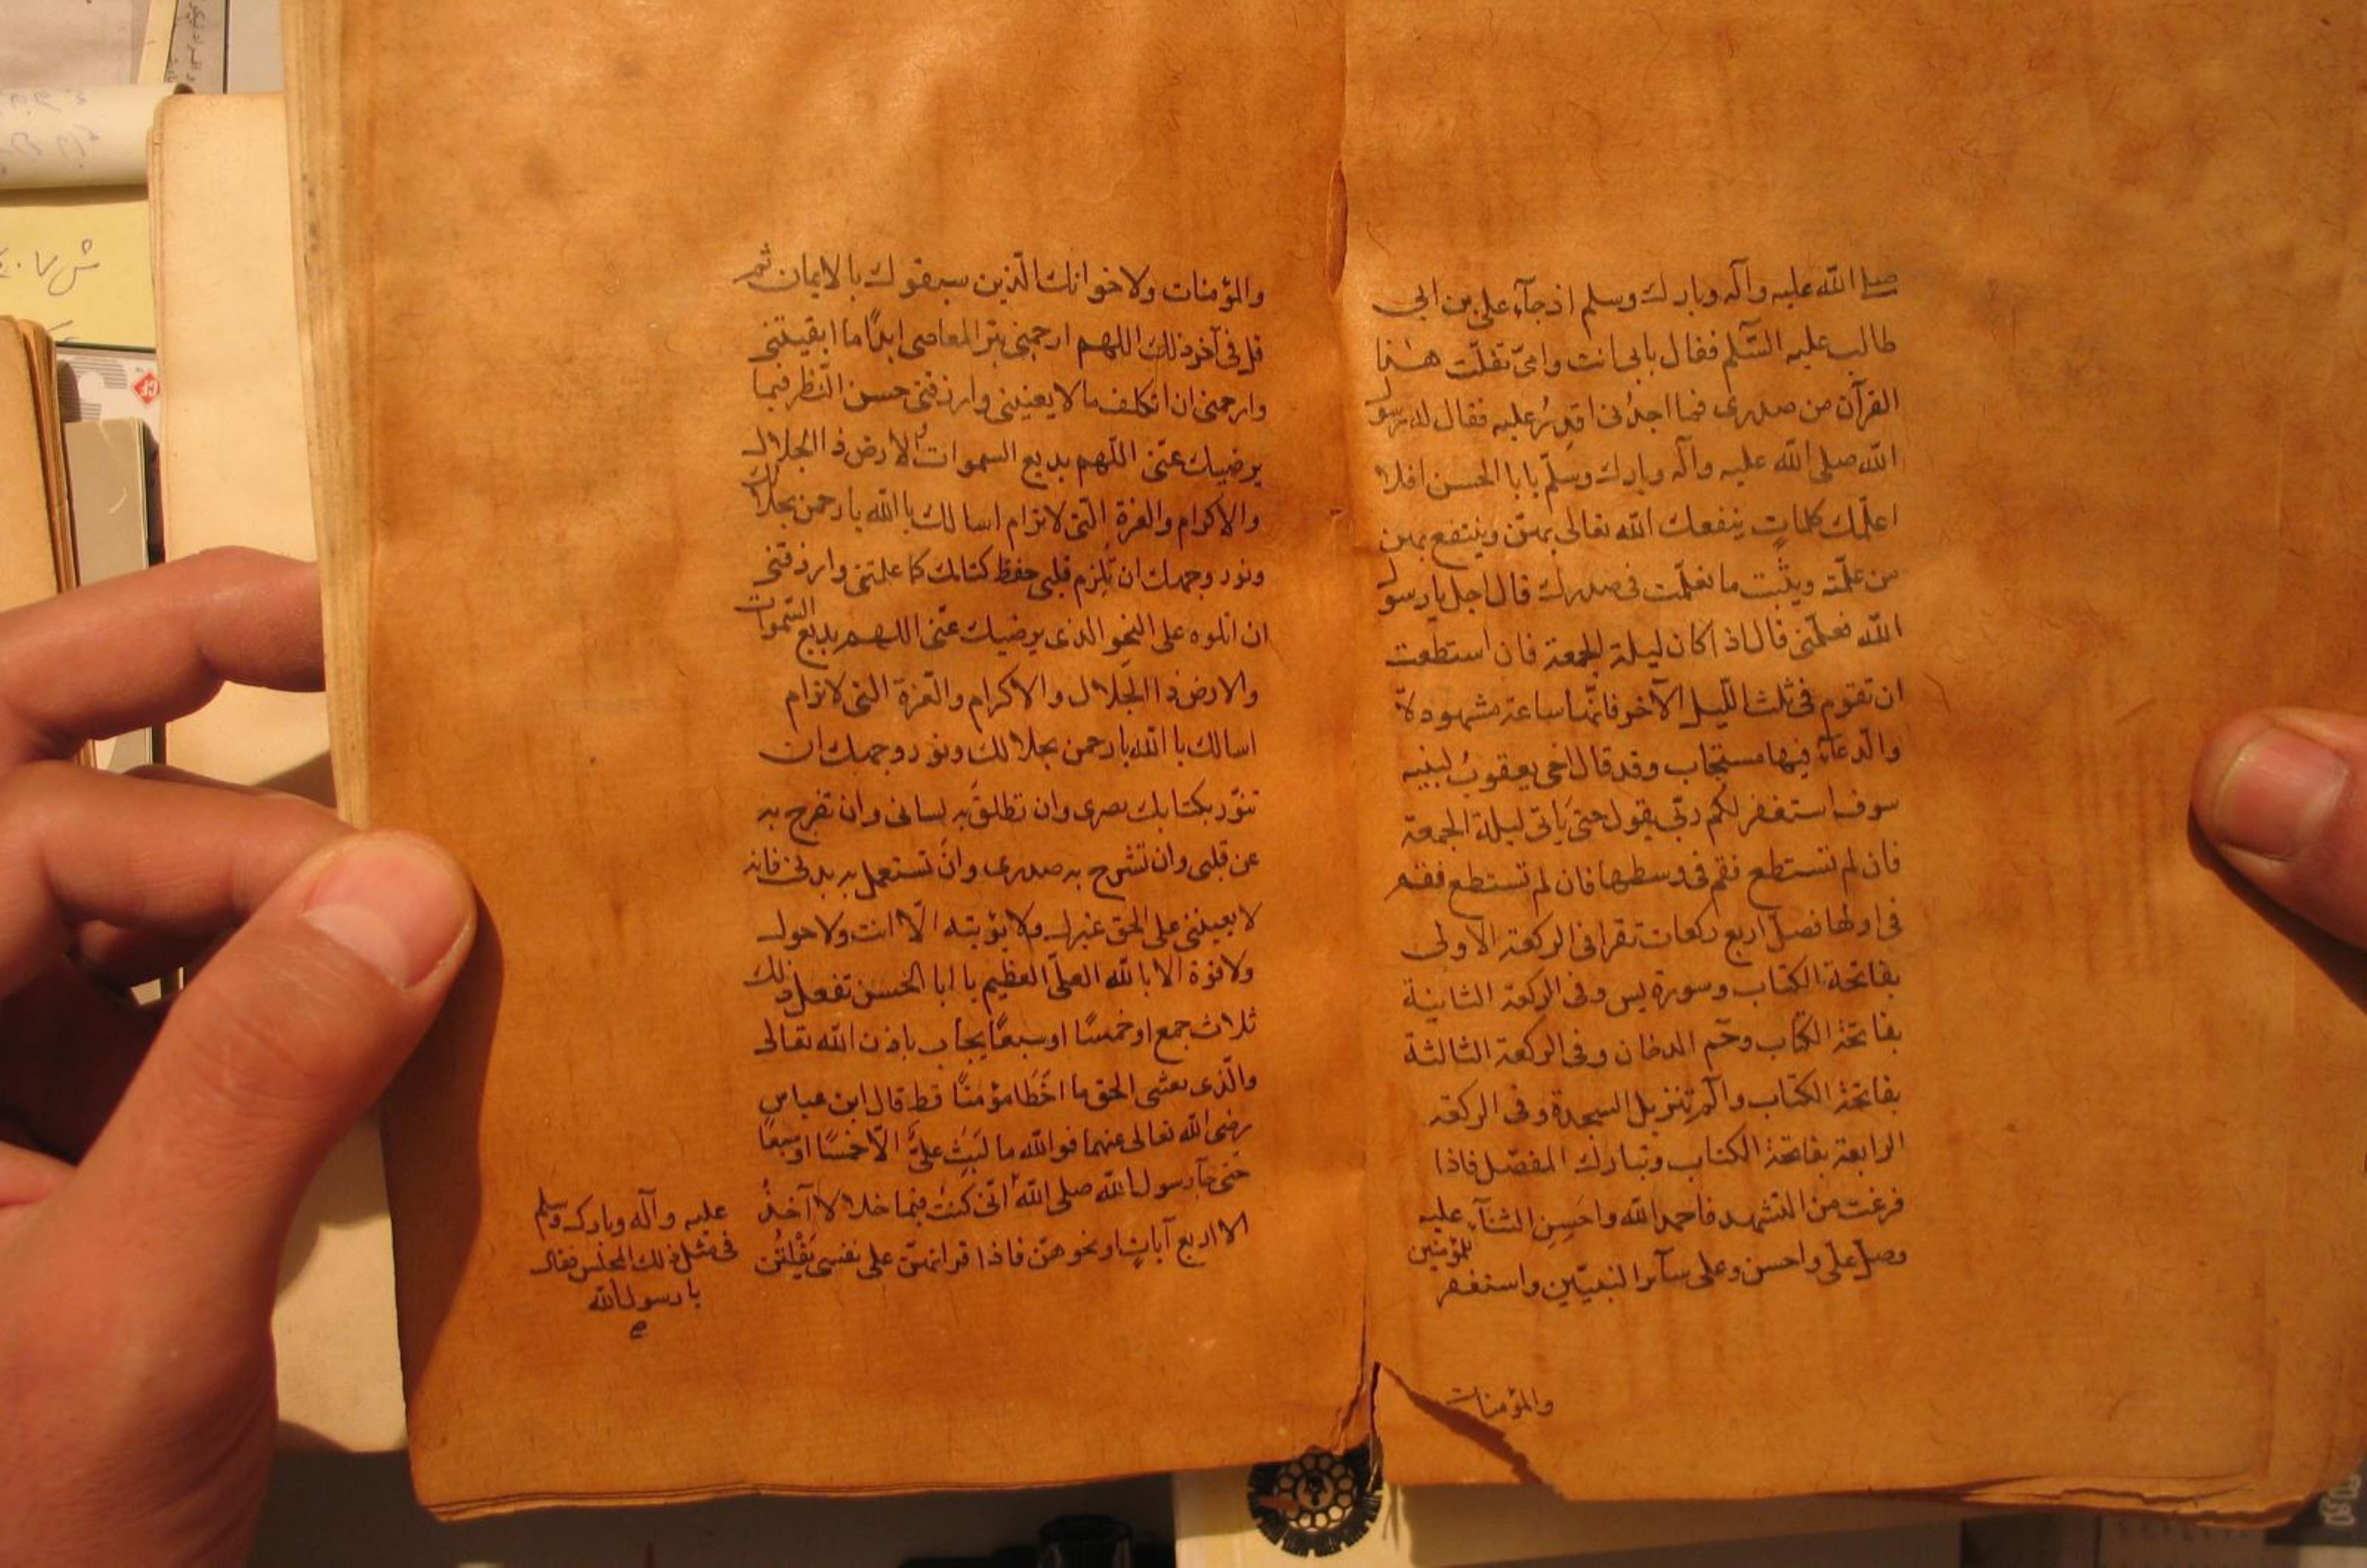 صلى الله عليه وآله وبارك وسلم اذ جآء على بن ابى
طالب عليه السّلم فقال بابى انت وامّى تفلّت هذا
القرآن من صدرى فما اجدُنى اقدِرُ عليه فقال له رسول
الله صلى الله عليه وآله وبارك وسلّم يابا الحسن افلا
اعلّمك كلماتٍ ينفعك الله تعالى بهنّ وينتفع بهن
من علّمته ويثّبت ما تعلّمت فى صدرك قال اجل يا رسول
الله فعلّمنى قال اذا كان ليلة الجمعة فان استطعت
ان تقوم فى ثلث اللّيل الآخر فانّها ساعة مشهودة
والدّعاء فيها مستجاب وقد قال اخى يعقوبُ لبنيه
سوف استغفر لكم ربّى يقول حتى ياتى ليلة الجمعة
فان لم تستطع فقم فى وسطها فان لم تستطع فقم
فى اولها فصلّ اربع ركعات تقرا فى الركعة الاولى
بفاتحة الكتاب وسورة يس وفى الركعة الثانية
بفاتحة الكتاب وحم الدخان وفى الركعة الثالثة
بفاتحة الكتاب والم تنزيل السجدة وفى الركعة
الرابعة بفاتحة الكتاب وتبارك المفصّل فاذا
فرغت من التشهد فاحمد الله واحسِنِ الثنآء عليه
وصلّ علىّ واحسن وعلى سآئر النبيّين واستغفر للمؤمنين
والمؤمنات
والمؤمنات ولاخوانك الّذين سبقوك بالايمان ثم
قل فى آخر ذلك اللهم ارحمنى بترك المعاصى ابدًا ما ابقيتنى
وارحمنى ان اتكلف ما لا يعنينى وارزقنى حسن النّظر فيما
يرضيك عنّى اللّهم بديع السموات والارض ذا الجلال
والاكرام والعزة الّتى لا ترام اسالك يا الله يا رحمن بجلالك
ونور وجهك ان تُلزم قلبى حفظ كتابك كما علمتنى وارزقنى
ان اتلوه على النحو الذى يرضيك عنّى اللهم بديع السّموات
والارض ذا الجلال والاكرام والعزة التى لا ترام
اسالك يا الله يا رحمن بجلالك ونور وجهك ان
تنوّر بكتابك بصرى وان تطلق به لسانى وان تفرج به
عن قلبى وان تشرح به صدرى وان تستعمل به بدنى فانه
لا يعيننى على الحق غيرك ولا يؤيته الّا انت ولا حول
ولا قوة الا بالله العلىّ العظيم يا ابا الحسن تفعل ذلك
ثلاث جمع او خمسًا او سبعًا يجاب باذن الله تعالى
والّذى بعثنى بالحق ما اخطا مؤمنًا قط قال ابن عباس
رضى الله تعالى عنهما فوالله ما لبث علىٌّ الّا خمسًا او سبعًا
حتى جآء رسول الله صلى الله انّى كنت فيما خلا لا آخذُ
الا اربع آياتٍ او نحوهنّ فاذا قراتهنّ على نفسى تفلتن
عليه وآله وبارك وسلم
فى مثل ذلك المجلس فقال
يا رسول الله